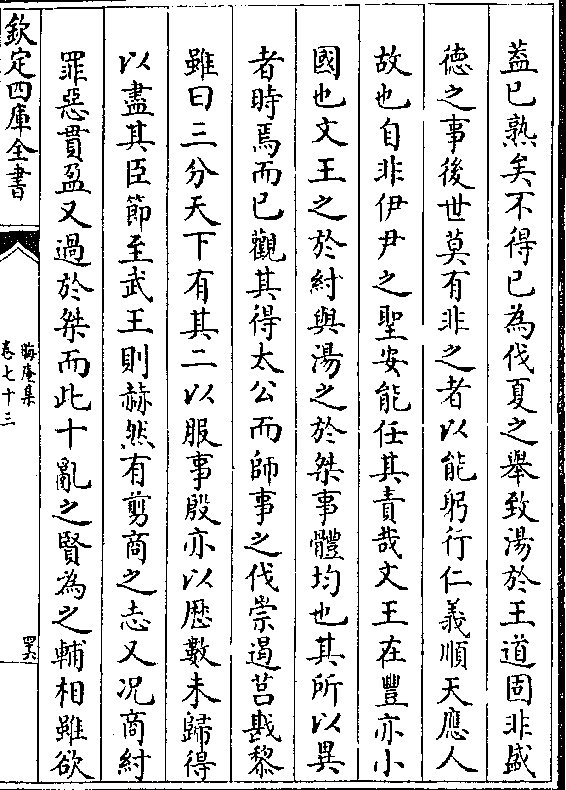 葢已熟矣不得已為伐夏之舉致湯於王道固非盛
德之事後世莫有非之者以能躬行仁義順天應人
故也自非伊尹之聖安能任其責哉文王在豐亦小
國也文王之於紂與湯之於桀事體均也其所以異
者時焉而已觀其得太公而師事之伐崇遏莒戡黎
雖曰三分天下有其二以服事殷亦以厯數未歸得
以盡其臣節至武王則赫然有剪商之志又况商紂
罪惡貫盈又過於桀而此十亂之賢為之輔相雖欲
欽定四庫全書
晦庵集
卷七十三
罢